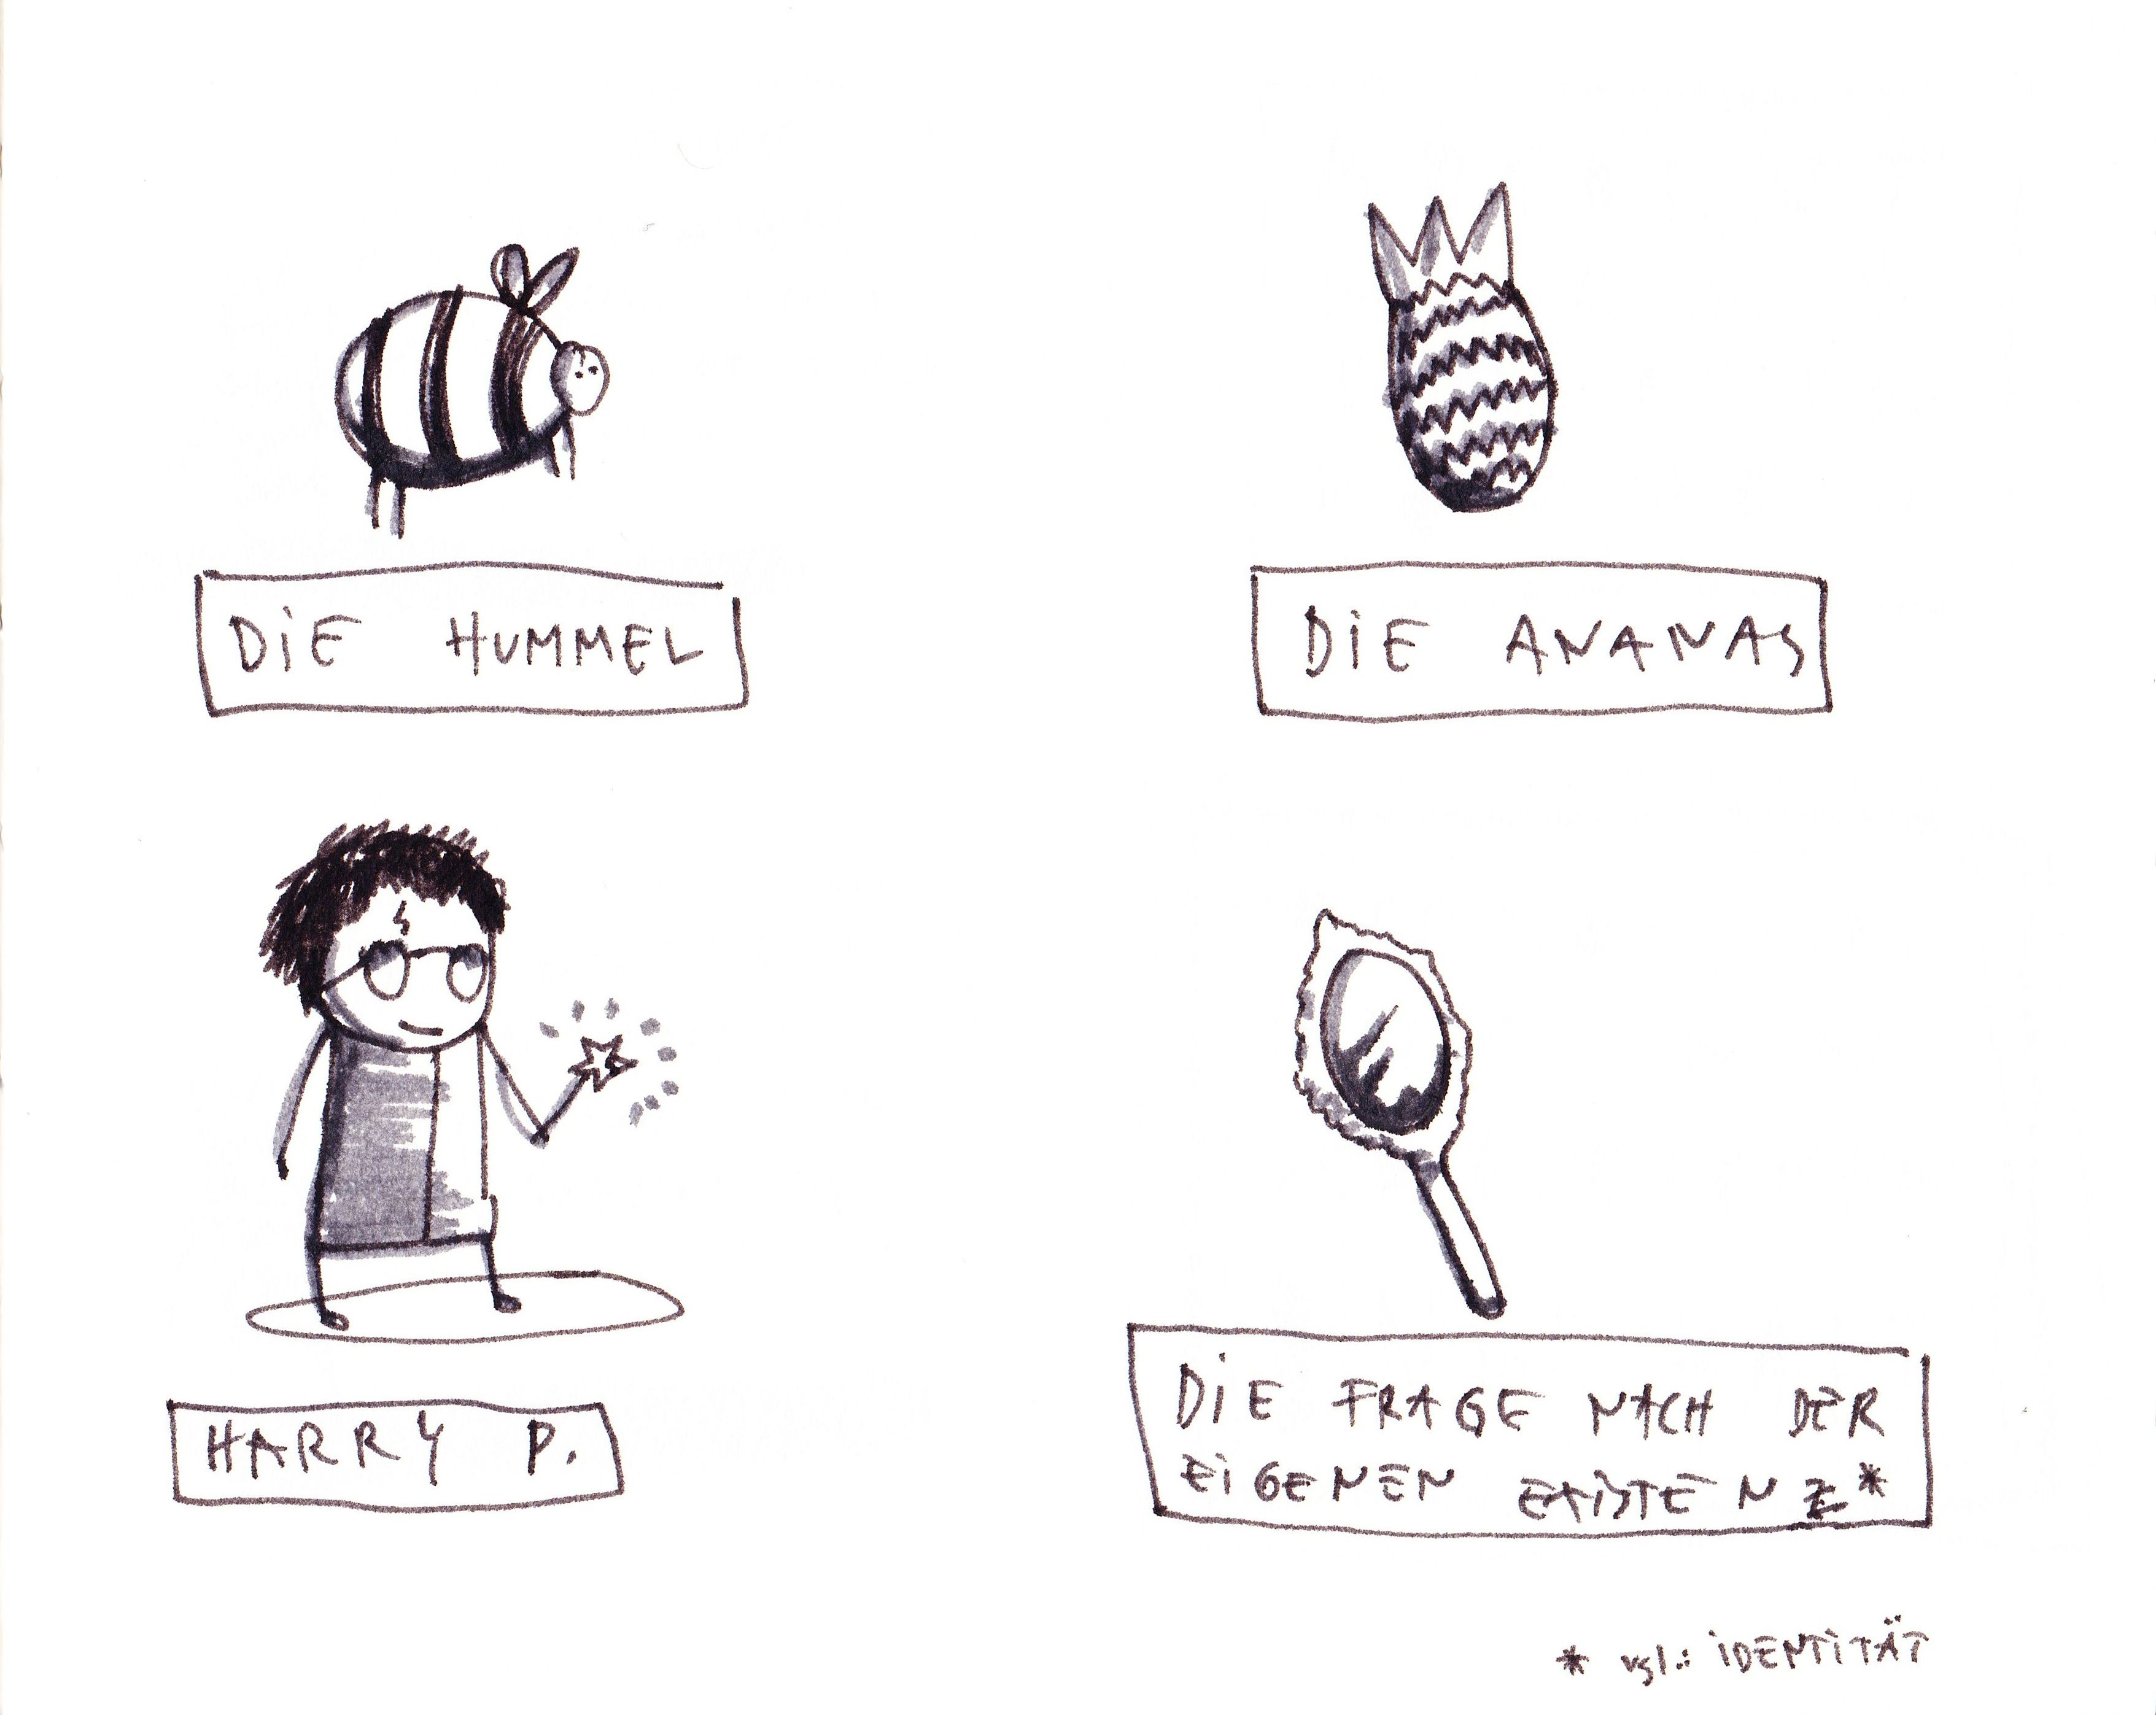 DiE HUMMEL
DiE ANANAS
HARRY P.
DiE FRAGE NACH DER
EiGENEN EXiSTENZ*
* vgl.: iDENTiTÄT